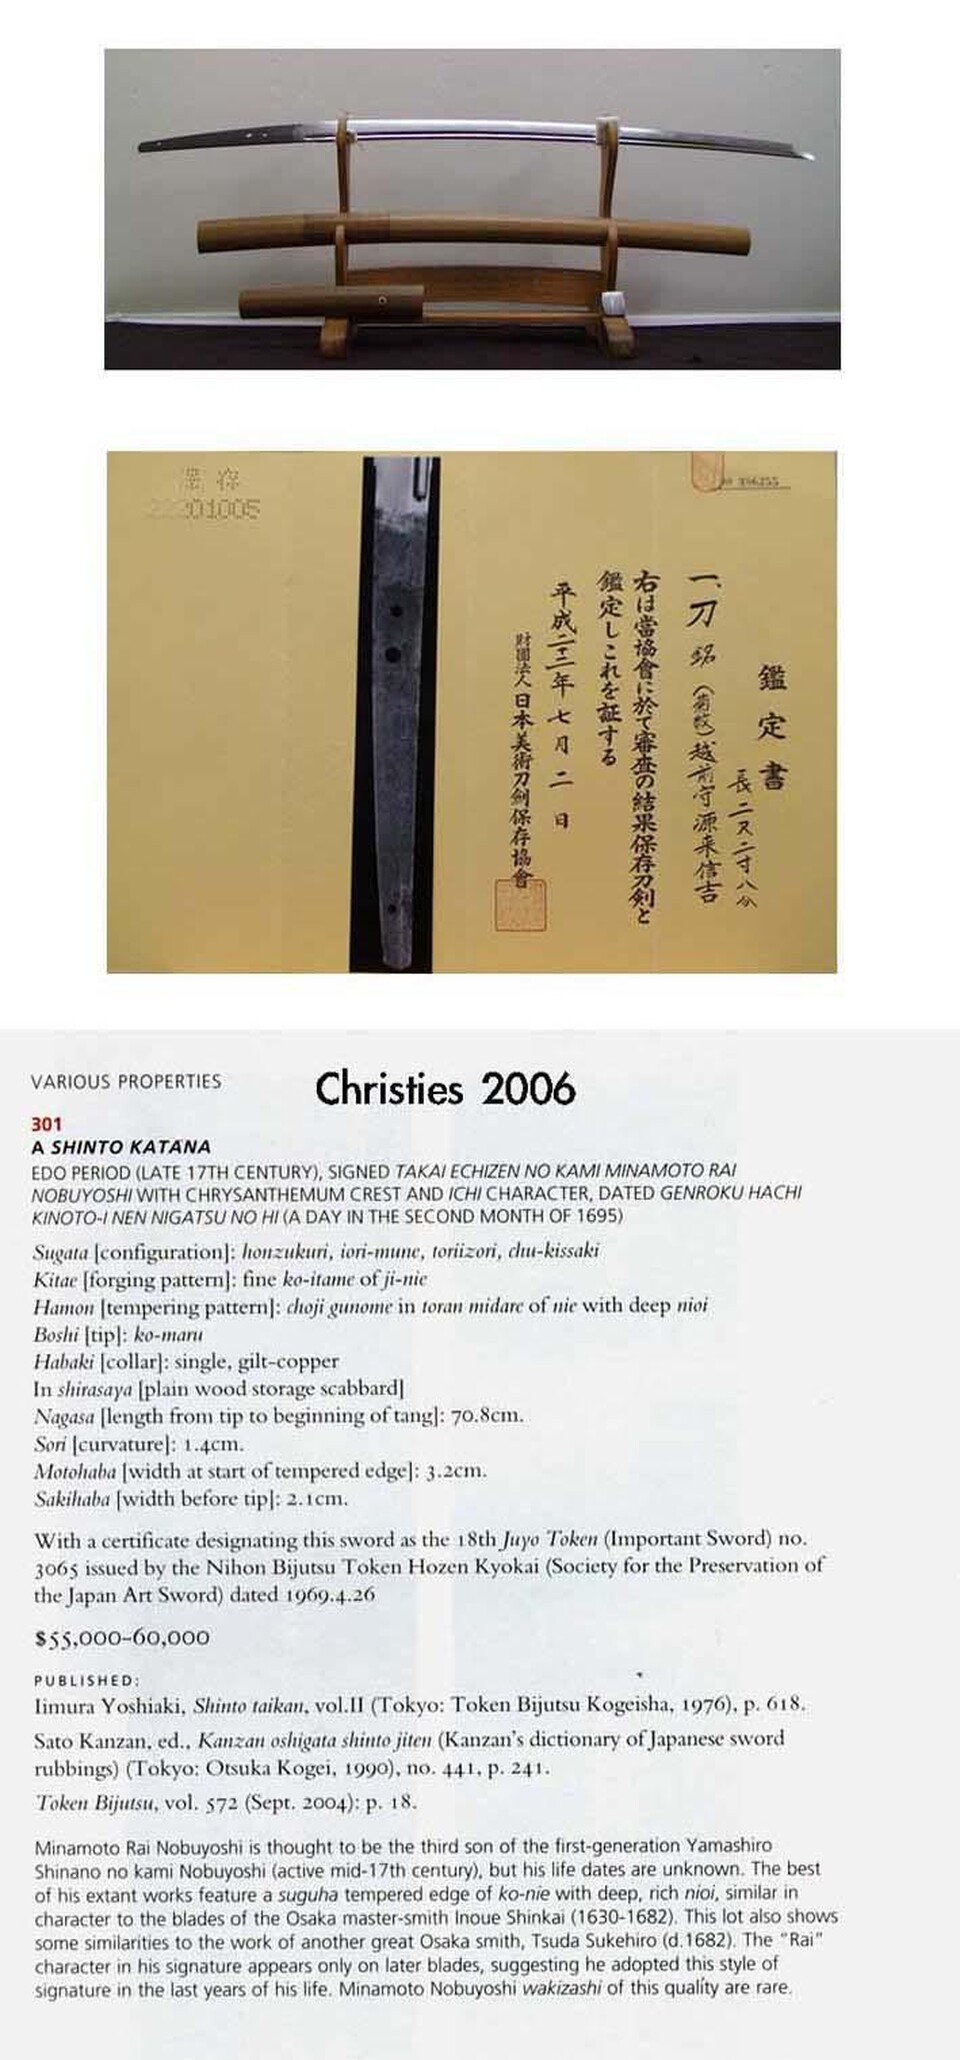 保存
01005
鑑定書
長二尺二寸八分
一、刀 銘（菊紋）越前守源来信吉
右は當協會に於て審査の結果保存刀剣と
鑑定しこれを証する
平成二十二年七月二日
財團法人日本美術刀劍保存協會
VARIOUS PROPERTIES
Christies 2006
301
A SHINTO KATANA
EDO PERIOD (LATE 17TH CENTURY), SIGNED TAKAI ECHIZEN NO KAMI MINAMOTO RAI
NOBUYOSHI WITH CHRYSANTHEMUM CREST AND ICHI CHARACTER, DATED GENROKU HACHI
KINOTO-I NEN NIGATSU NO HI (A DAY IN THE SECOND MONTH OF 1695)
Sugata [configuration]: honzukuri, iori-mune, toriizori, chu-kissaki
Kitae [forging pattern]: fine ko-itame of ji-nie
Hamon [tempering pattern]: choji gunome in toran midare of nie with deep nioi
Boshi [tip]: ko-maru
Habaki [collar]: single, gilt-copper
In shirasaya [plain wood storage scabbard]
Nagasa [length from tip to beginning of tang]: 70.8cm.
Sori [curvature]: 1.4cm.
Motohaba [width at start of tempered edge]: 3.2cm.
Sakihaba [width before tip]: 2.1cm.
With a certificate designating this sword as the 18th Juyo Token (Important Sword) no.
3065 issued by the Nihon Bijutsu Token Hozen Kyokai (Society for the Preservation of
the Japan Art Sword) dated 1969.4.26
$55,000-60,000
PUBLISHED:
Iimura Yoshiaki, Shinto taikan, vol.II (Tokyo: Token Bijutsu Kogeisha, 1976), p. 618.
Sato Kanzan, ed., Kanzan oshigata shinto jiten (Kanzan's dictionary of Japanese sword
rubbings) (Tokyo: Otsuka Kogei, 1990), no. 441, p. 241.
Token Bijutsu, vol. 572 (Sept. 2004): p. 18.
Minamoto Rai Nobuyoshi is thought to be the third son of the first-generation Yamashiro
Shinano no kami Nobuyoshi (active mid-17th century), but his life dates are unknown. The best
of his extant works feature a suguha tempered edge of ko-nie with deep, rich nioi, similar in
character to the blades of the Osaka master-smith Inoue Shinkai (1630-1682). This lot also shows
some similarities to the work of another great Osaka smith, Tsuda Sukehiro (d.1682). The "Rai"
character in his signature appears only on later blades, suggesting he adopted this style of
signature in the last years of his life. Minamoto Nobuyoshi wakizashi of this quality are rare.